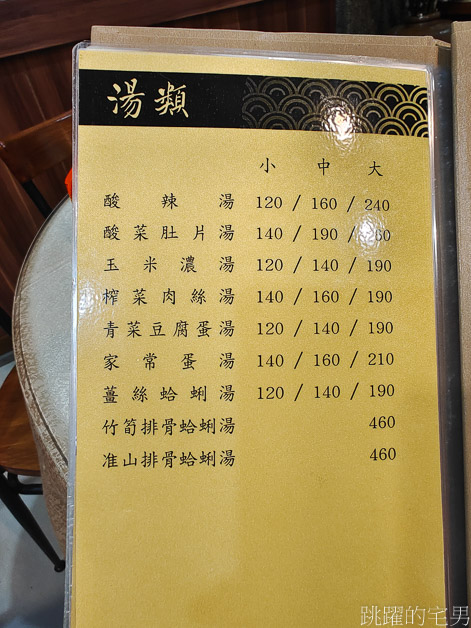 湯類
小 中 大
酸辣湯 120 / 160 / 240
酸菜肚片湯 140 / 190 / 260
玉米濃湯 120 / 140 / 190
榨菜肉絲湯 140 / 160 / 190
青菜豆腐蛋湯 120 / 140 / 190
家常蛋湯 140 / 160 / 210
薑絲蛤蜊湯 120 / 140 / 190
竹筍排骨蛤蜊湯 460
准山排骨蛤蜊湯 460
跳躍的宅男